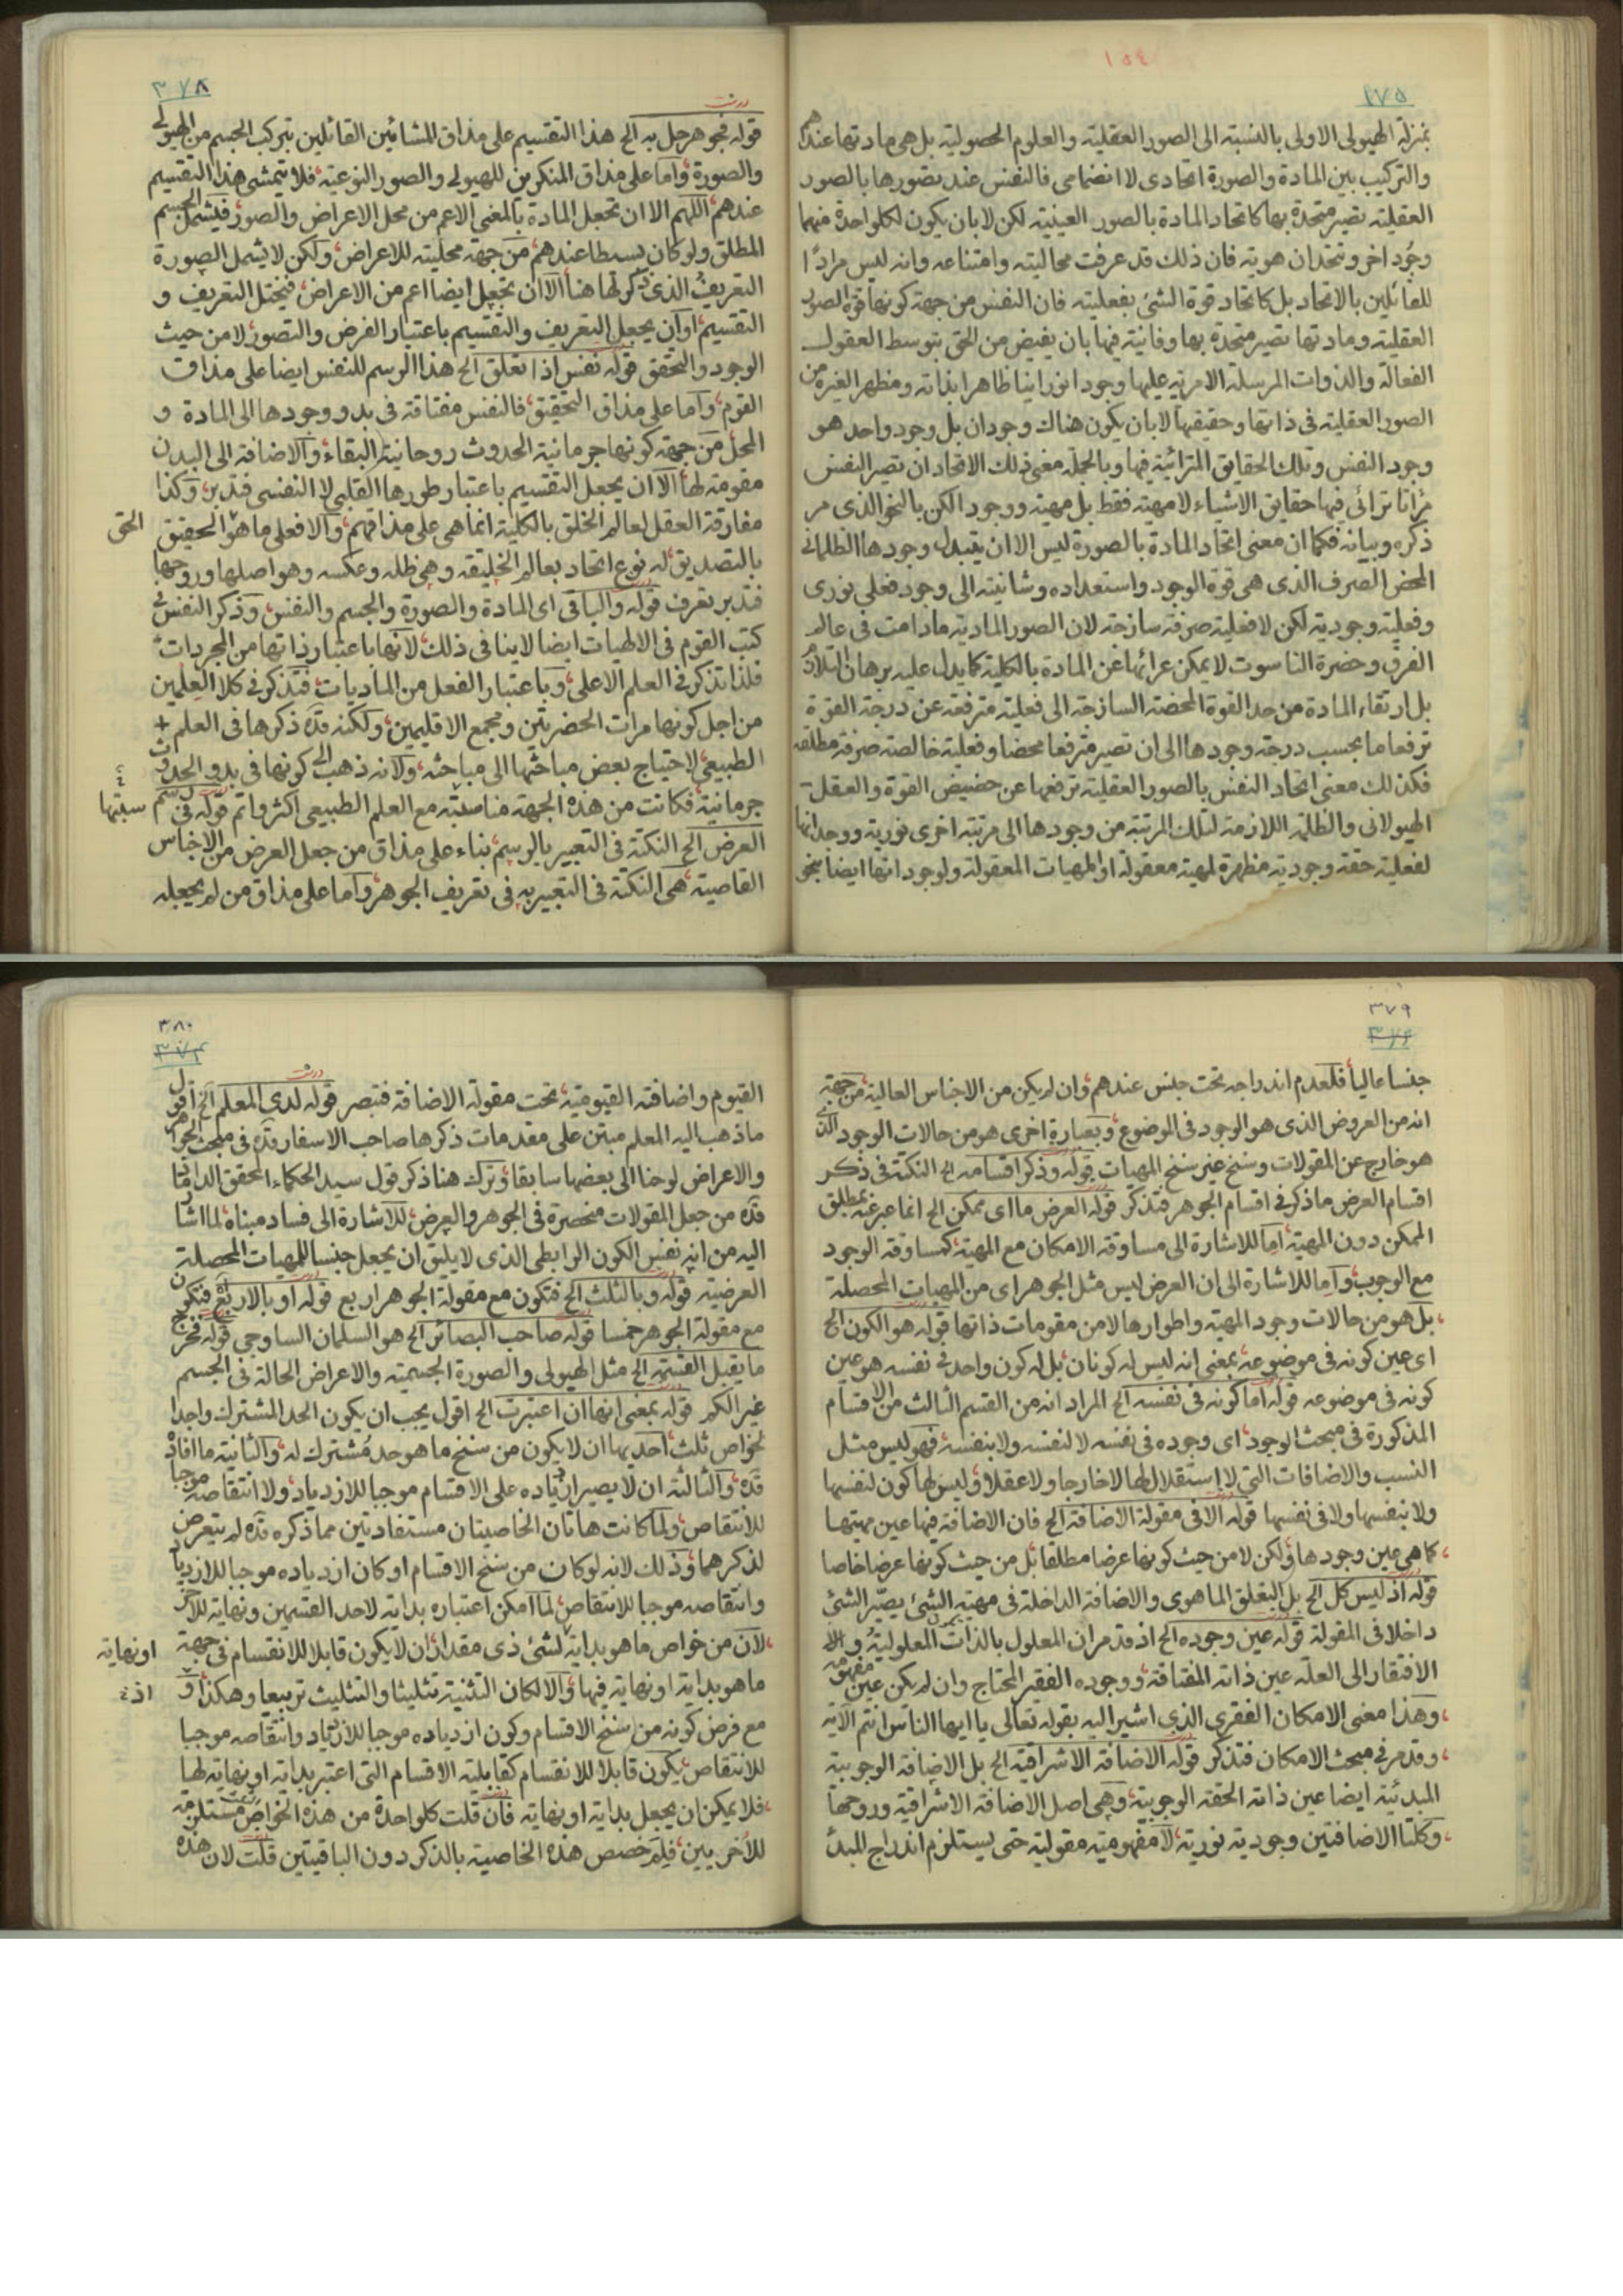 ١٥٤
٢٧٥
بمنزلة الهيولى الاولى بالنسبة الى الصور العقلية والعلوم الحصولية بل هى مادتها عندهم
والتركيب بين المادة والصورة اتحادى لا انضمامى فالنفس عند تصورها بالصور
العقلية تصير متحدة بها كاتحاد المادة بالصور العينية لكن لا بان يكون لكلواحدة منهما
وجود اخر ويتحدان هوية فان ذلك قد عرفت محاليته وامتناعه وانه ليس مرادًا
للقائلين بالاتحاد بل كاتحاد قوة الشئ بفعليته فان النفس من جهة كونها قوة الصور
العقلية ومادتها تصير متحدة بها وفانية فيها بان يفيض من الحق بتوسط العقول
الفعالة والذوات المرسلة الامرية عليها وجودا نورانيا ظاهرا بذاته ومظهرا لغيره من
الصور العقلية فى ذاتها وحقيقتها لا بان يكون هناك وجودان بل وجود واحد هو
وجود النفس وتلك الحقايق المترائية فيها وبالجملة معنى ذلك الاتحاد ان تصير النفس
مراتا ترائى فيها حقايق الاشياء لا مهية فقط بل مهية ووجودا لكن بالنحو الذى مر
ذكره وبيانه فكما ان معنى اتحاد المادة بالصورة ليس الا ان يتبدل وجودها الظلمانى
المحض الصرف الذى هى قوة الوجود واستعداده وشانيته الى وجود فعلى نورى
وفعلية وجودية لكن لا فعلية صرفة سازجة لان الصور المادية مادامت فى عالم
الفرق وحضرة الناسوت لا يمكن عرائها عن المادة بالكلية كما يدل عليه برهان التلازم
بل ارتقاء المادة من حد القوة المحضة السازجة الى فعلية مترفعة عن درجة القوة
ترفعا ما بحسب درجة وجودها الى ان تصير مترفعا محضا وفعلية خالصة صرفة مطلقة
فكذلك معنى اتحاد النفس بالصور العقلية ترفعها عن حضيض القوة والعقل
الهيولانى والظلمة اللازمة لتلك المرتبة من وجودها الى مرتبة اخرى نورية ووجدانها
لفعلية حقة وجودية مظهرة لمهية معقولة او المهيات المعقولة ولوجوداتها ايضا بنحو
٣٧٨
قوله فجوهر حل به الخ هذا التقسيم على مذاق المشائين القائلين بتركب الجسم من الهيولى
والصورة واما على مذاق المنكرين للهيولى والصور النوعية فلا يتمشى هذا التقسيم
عندهم اللهم الا ان تجعل المادة بالمعنى الاعم من محل الاعراض والصور فيشمل الجسم
المطلق ولو كان بسيطا عندهم من جهة محليته للاعراض ولكن لا يشمل الصورة
التعريف الذى ذكر لها هنا الا ان يجعل ايضا اعم من الاعراض فيختل التعريف و
التقسيم او ان يجعل التعريف والتقسيم باعتبار الفرض والتصور لا من حيث
الوجود والتحقق قوله نفس اذا تعلق الخ هذا الرسم للنفس ايضا على مذاق
القوم واما على مذاق التحقيق فالنفس مفتاقة فى بدو وجودها الى المادة و
المحل من جهة كونها جرمانية الحدوث روحانية البقاء والاضافة الى البدن
مقومة لها الا ان يجعل التقسيم باعتبار طورها القلبى لا النفسى فتدبر وكذا
مفارقة العقل لعالم الخلق بالكلية انما هى على مذاقهم والا فعلى ما هو التحقيق
الحق
بالتصديق له نوع اتحاد بعالم الخليقة وهى ظله وعكسه وهو اصلها وروحها
فتدبر تعرف قوله والباقى اى المادة والصورة والجسم والنفس وذكر النفس فى
كتب القوم فى الالهيات ايضا لا ينافى ذلك لانها باعتبار ذاتها من المجردات
فلذا تذكر فى العلم الاعلى وباعتبار الفعل من الماديات فتذكر فى كلا العلمين
من اجل كونها مرات الحضرتين ومجمع الاقليمين ولكنه قده ذكرها فى العلم
الطبيعى لاحتياج بعض مباحثها الى مباحثه ولانه ذهب الى كونها فى بدو الحدوث
جرمانية فكانت من هذه الجهة مناسبته مع العلم الطبيعى اكثر واتم قوله فى رسم
سبتها
العرض الخ النكتة فى التعبير بالرسم بناء على مذاق من جعل العرض من الاجناس
القاصية هى النكتة فى التعبير به فى تعريف الجوهر واما على مذاق من لم يجعله
٣٧٩
جنسا عاليا فلعدم اندراجه تحت جنس عندهم وان لم يكن من الاجناس العالية من جهة
انه من العروض الذى هو الوجود فى الموضوع وبعبارة اخرى هو من حالات الوجود الذى
هو خارج عن المقولات وسنخ غير سنخ المهيات قوله وذكر اقسامه الخ النكتة فى ذكر
اقسام العرض ما ذكر فى اقسام الجوهر فتذكر قوله العرض ما اى ممكن الخ انما عبر عنه بمطلق
الممكن دون المهية اما للاشارة الى مساوقة الامكان مع المهية كمساوقة الوجود
مع الوجوب واما للاشارة الى ان العرض ليس مثل الجوهر اى من المهيات المحصلة
بل هو من حالات وجود المهية واطوارها لا من مقومات ذاتها قوله هو الكون الخ
اى عين كونه فى موضوعه بمعنى انه ليس له كونان بل له كون واحد فى نفسه هو عين
كونه فى موضوعه قوله اما كونه فى نفسه الخ المراد انه من القسم الثالث من الاقسام
المذكورة فى مبحث الوجود اى وجوده فى نفسه لا لنفسه ولا بنفسه فهو ليس مثل
النسب والاضافات التى لا استقلال لها لا خارجا ولا عقلا وليس لها كون لنفسها
ولا بنفسها ولا فى نفسها قوله الا فى مقولة الاضافة الخ فان الاضافة فيها عين مهيتها
كما هى عين وجودها ولكن لا من حيث كونها عرضا مطلقا بل من حيث كونها عرضا خاصا
قوله اذ ليس كل الخ بل التعلق الماهوى والاضافة الداخلة فى مهية الشئ يصير الشئ
داخلا فى المقولة قوله عين وجوده الخ اذ قد مر ان المعلول بالذات المعلولية و
الافتقار الى العلة عين ذاته المفتاقة ووجوده الفقير المحتاج وان لم يكن عين مفهومه
وهذا معنى الامكان الفقرى الذى اشير اليه بقوله تعالى يا ايها الناس انتم الآية
وقد مر فى مبحث الامكان فتذكر قوله الاضافة الاشراقية الخ بل الاضافة الوجوبية
المبدئية ايضا عين ذاته الحقة الوجوبية وهى اصل الاضافة الاشراقية وروحها
وكلتا الاضافتين وجودية نورية لا مفهومية مقولية حتى يستلزم اندراج المبدأ
٣٨٠
القيوم واضافته القيومية تحت مقولة الاضافة فتبصر قوله لدى المعلم الخ اقول
ما ذهب اليه المعلم مبتن على مقدمات ذكرها صاحب الاسفار قده فى مبحث الجواهر
والاعراض لوحنا الى بعضها سابقا وترك هنا ذكر قول سيد الحكماء المحقق الداماد
قده من جعل المقولات منحصرة فى الجوهر والعرض للاشارة الى فساد مبناه لما اشار
اليه من انه نفس الكون الرابطى الذى لا يليق ان يجعل جنسا للمهيات المحصلة
العرضية قوله وبالثلث الخ فتكون مع مقولة الجوهر اربع قوله او بالاربع فتكون
مع مقولة الجوهر خمسا قوله صاحب البصائر الخ هو السلمان الساوجى قوله فخرج
ما يقبل القسمة الخ مثل الهيولى والصورة الجسمية والاعراض الحالة فى الجسم
غير الكم قوله بمعنى انها ان اعتبرت الخ اقول يجب ان يكون الحد المشترك واجدا
لخواص ثلث احديها ان لا يكون من سنخ ما هو حد مشترك له والثانية ما افاده
قده والثالثة ان لا يصير ازدياده على الاقسام موجبا للازدياد ولا انتقاصه موجبا
للانتقاص ولما كانت هاتان الخاصيتان مستفادتين مما ذكره قده لم يتعرض
لذكرهما وذلك لانه لو كان من سنخ الاقسام او كان ازدياده موجبا للازدياد
وانتقاصه موجبا للانتقاص لما امكن اعتباره بداية لاحد القسمين ونهاية للاخر
لان من خواص ما هو بداية لشئ ذى مقدار ان لا يكون قابلا للانقسام فى جهة
او نهاية
ما هو بداية او نهاية فيها والا لكان التثنية تثليثا والتثليث تربيعا وهكذا و
اذ
مع فرض كونه من سنخ الاقسام وكون ازدياده موجبا للازدياد وانتقاصه موجبا
للانتقاص يكون قابلا للانقسام كقابلية الاقسام التى اعتبر بداية او نهاية لها
فلا يمكن ان يجعل بداية او نهاية فان قلت كلواحدة من هذه الخواص مستلزمة
للاخريين فلم خصص هذه الخاصية بالذكر دون الباقيتين قلت لان هذه